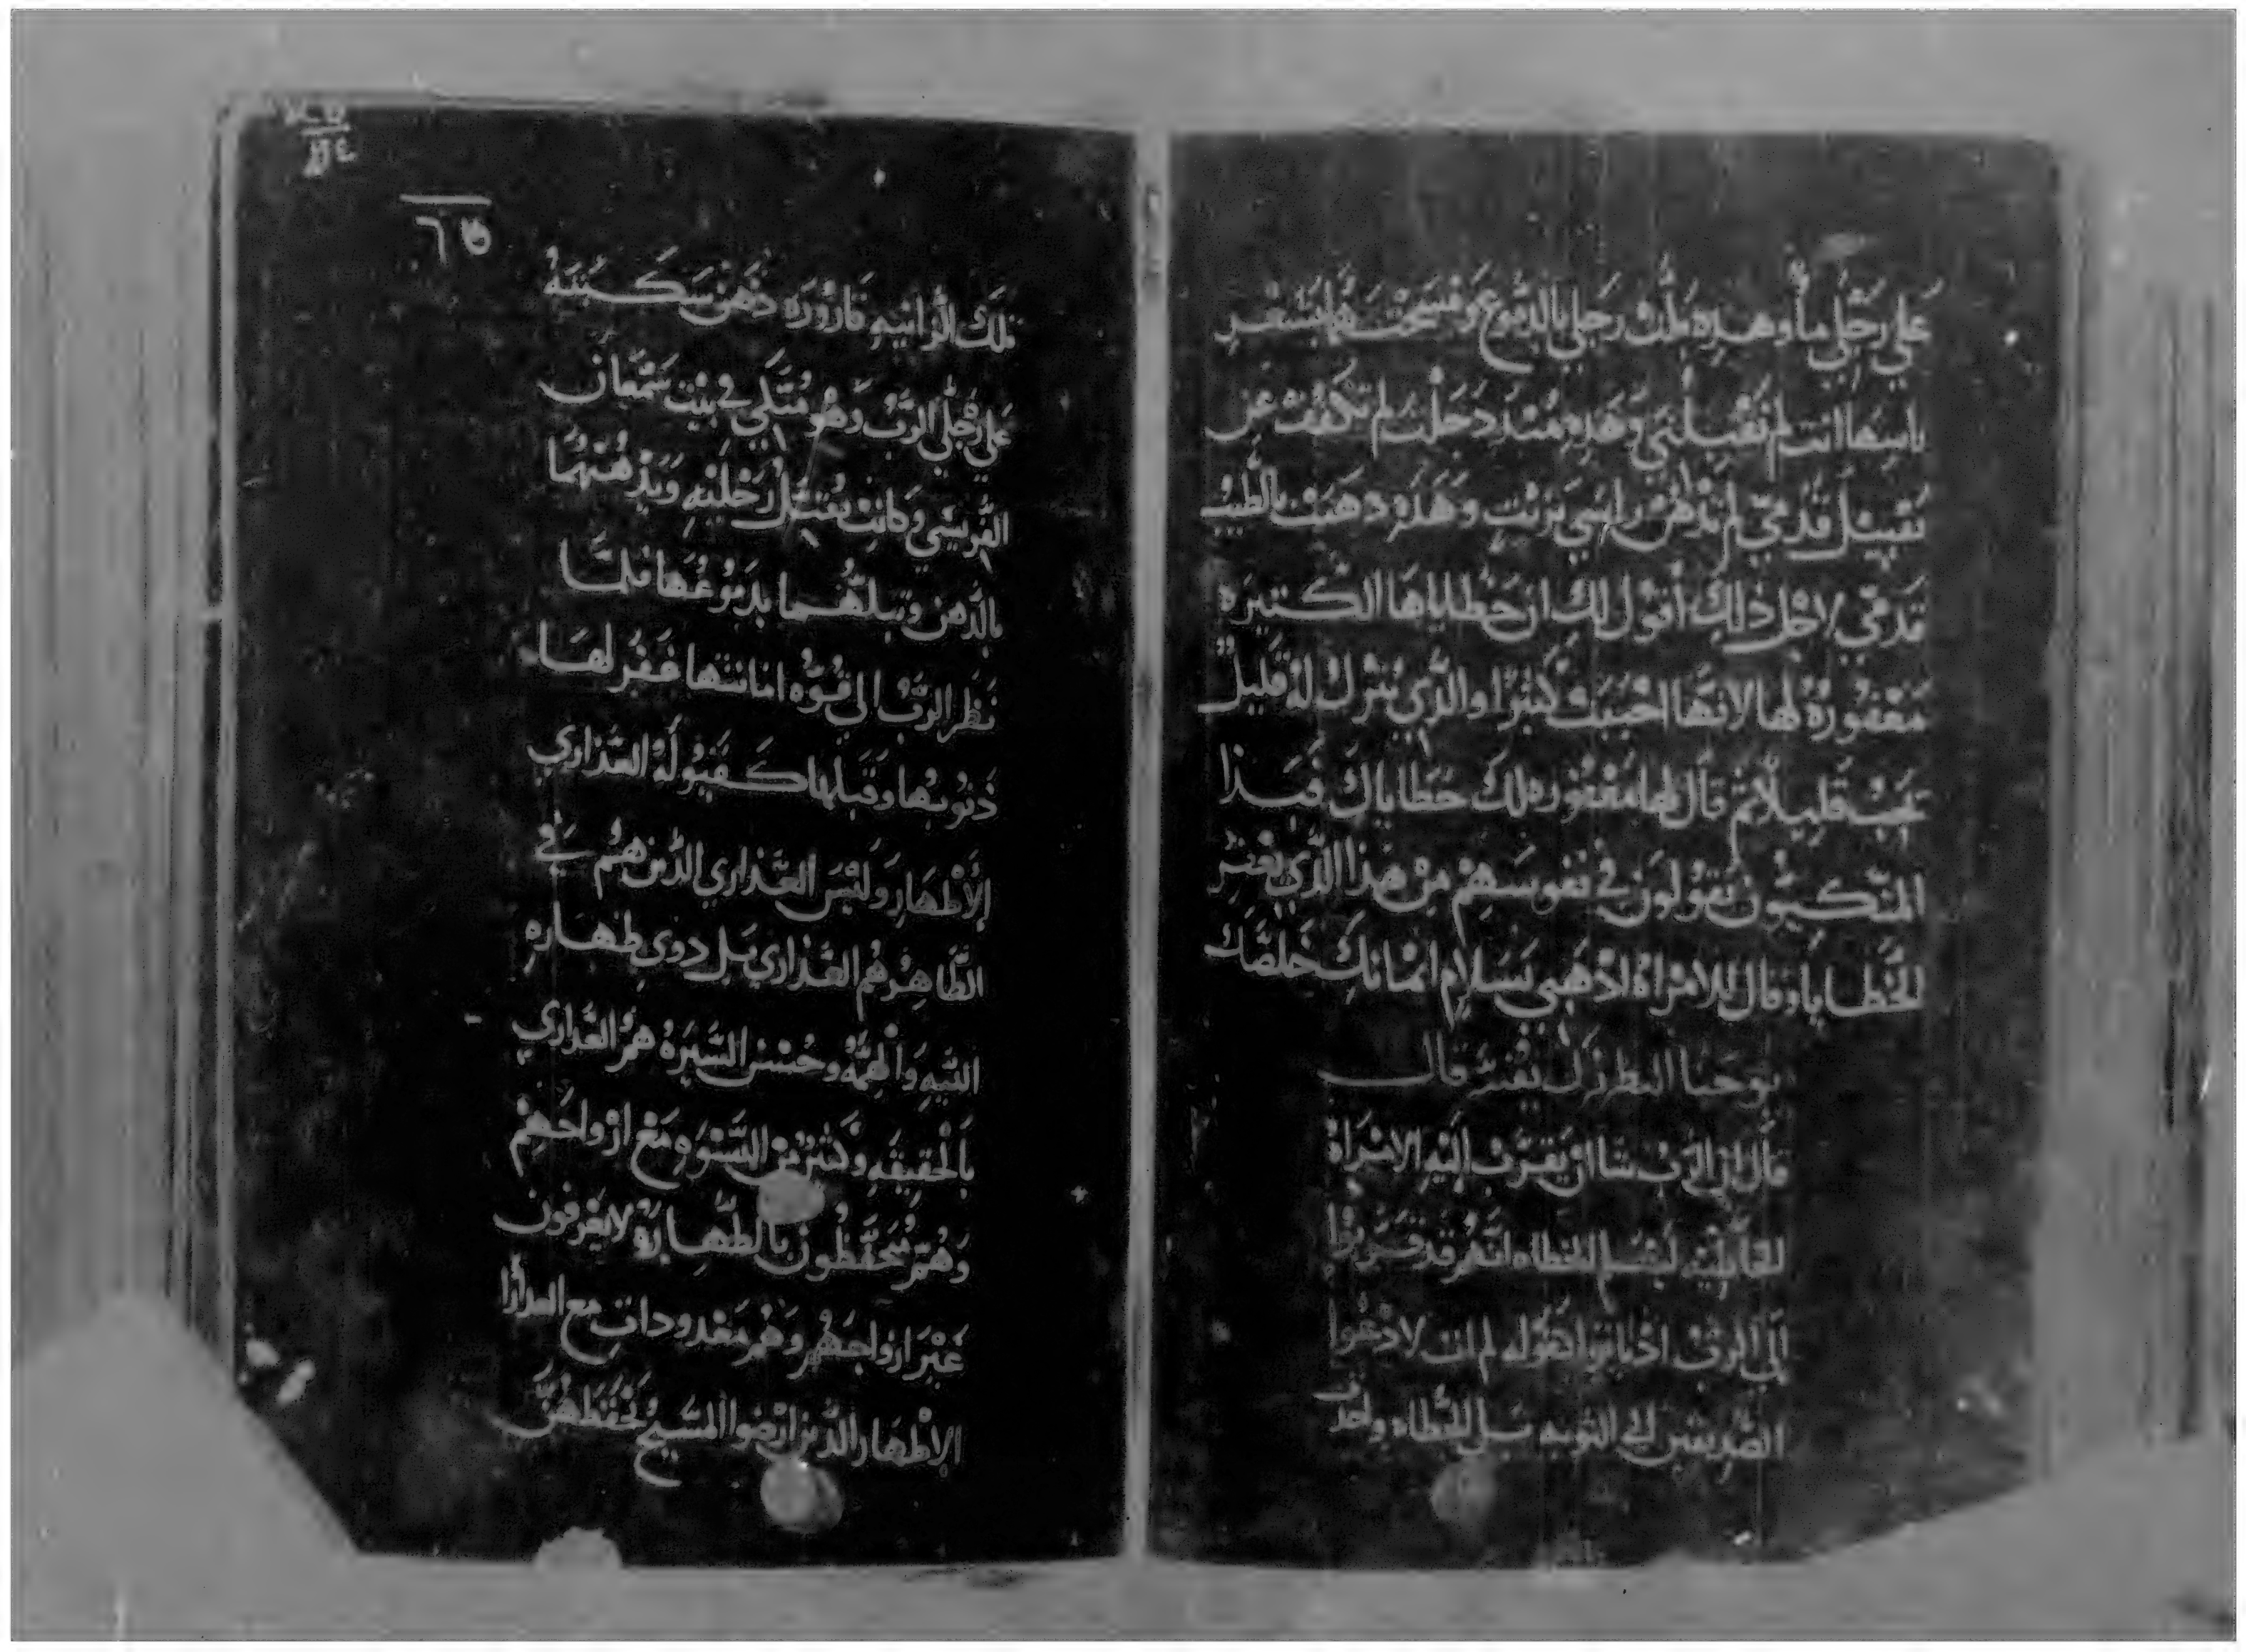 علي رجلي ماء وهذه بلت رجلي بالدموع ومسحتهما بشعر
راسها انت لم تقبلني وهذه منذ دخلت لم تكفف عن
تقبيل قدمي لم تدهن راسي بزيت وهذه دهنت بالطيب
قدمي لاجل ذلك أقول لك ان خطاياها الكثيره
مغفورة لها لانها احببت كثيرا والذي يترك له قليل
يحب قليلا ثم قال لها مغفوره لك خطاياك فبدا
المتكيون يقولون في نفوسهم من هذا الذي يغفر
الخطايا وقال للامراة اذهبي بسلام ايمانك خلصك
يوحنا البطرك يفسر قال
قال ان الرب شا ان يقرب اليه الامراة
الخاطيه ليعلم الخطاه انهم قد قربوا
الي الرب اذ تابوا لقوله لم ات لادعوا
الصديقين الي التوبه بل الخطاه واخذت
تلك الزانيه قارورة دهن سكبته
علي رجلي الرب وهو متكي في بيت سمعان
الفريسي وكانت تقبل رجليه وتدهنهما
بالدهن وتبلهما بدموعها فلما
نظر الرب الي قوه امانتها غفر لها
ذنوبها وقبلها كقبوله العذاري
الأطهار وليس العذاري الذين هم في
الظاهر هم العذاري بل ذوي طهاره
النيه والهمه وحسن السيرة هم العذاري
بالحقيقه وكثير من النسوه مع ازواجهم
وهم متحفظون بالطهاره لا يعرفون
غير ازواجهم وهم معدودات مع العذارا
الاطهار الذين ارضوا المسيح بحفظهن